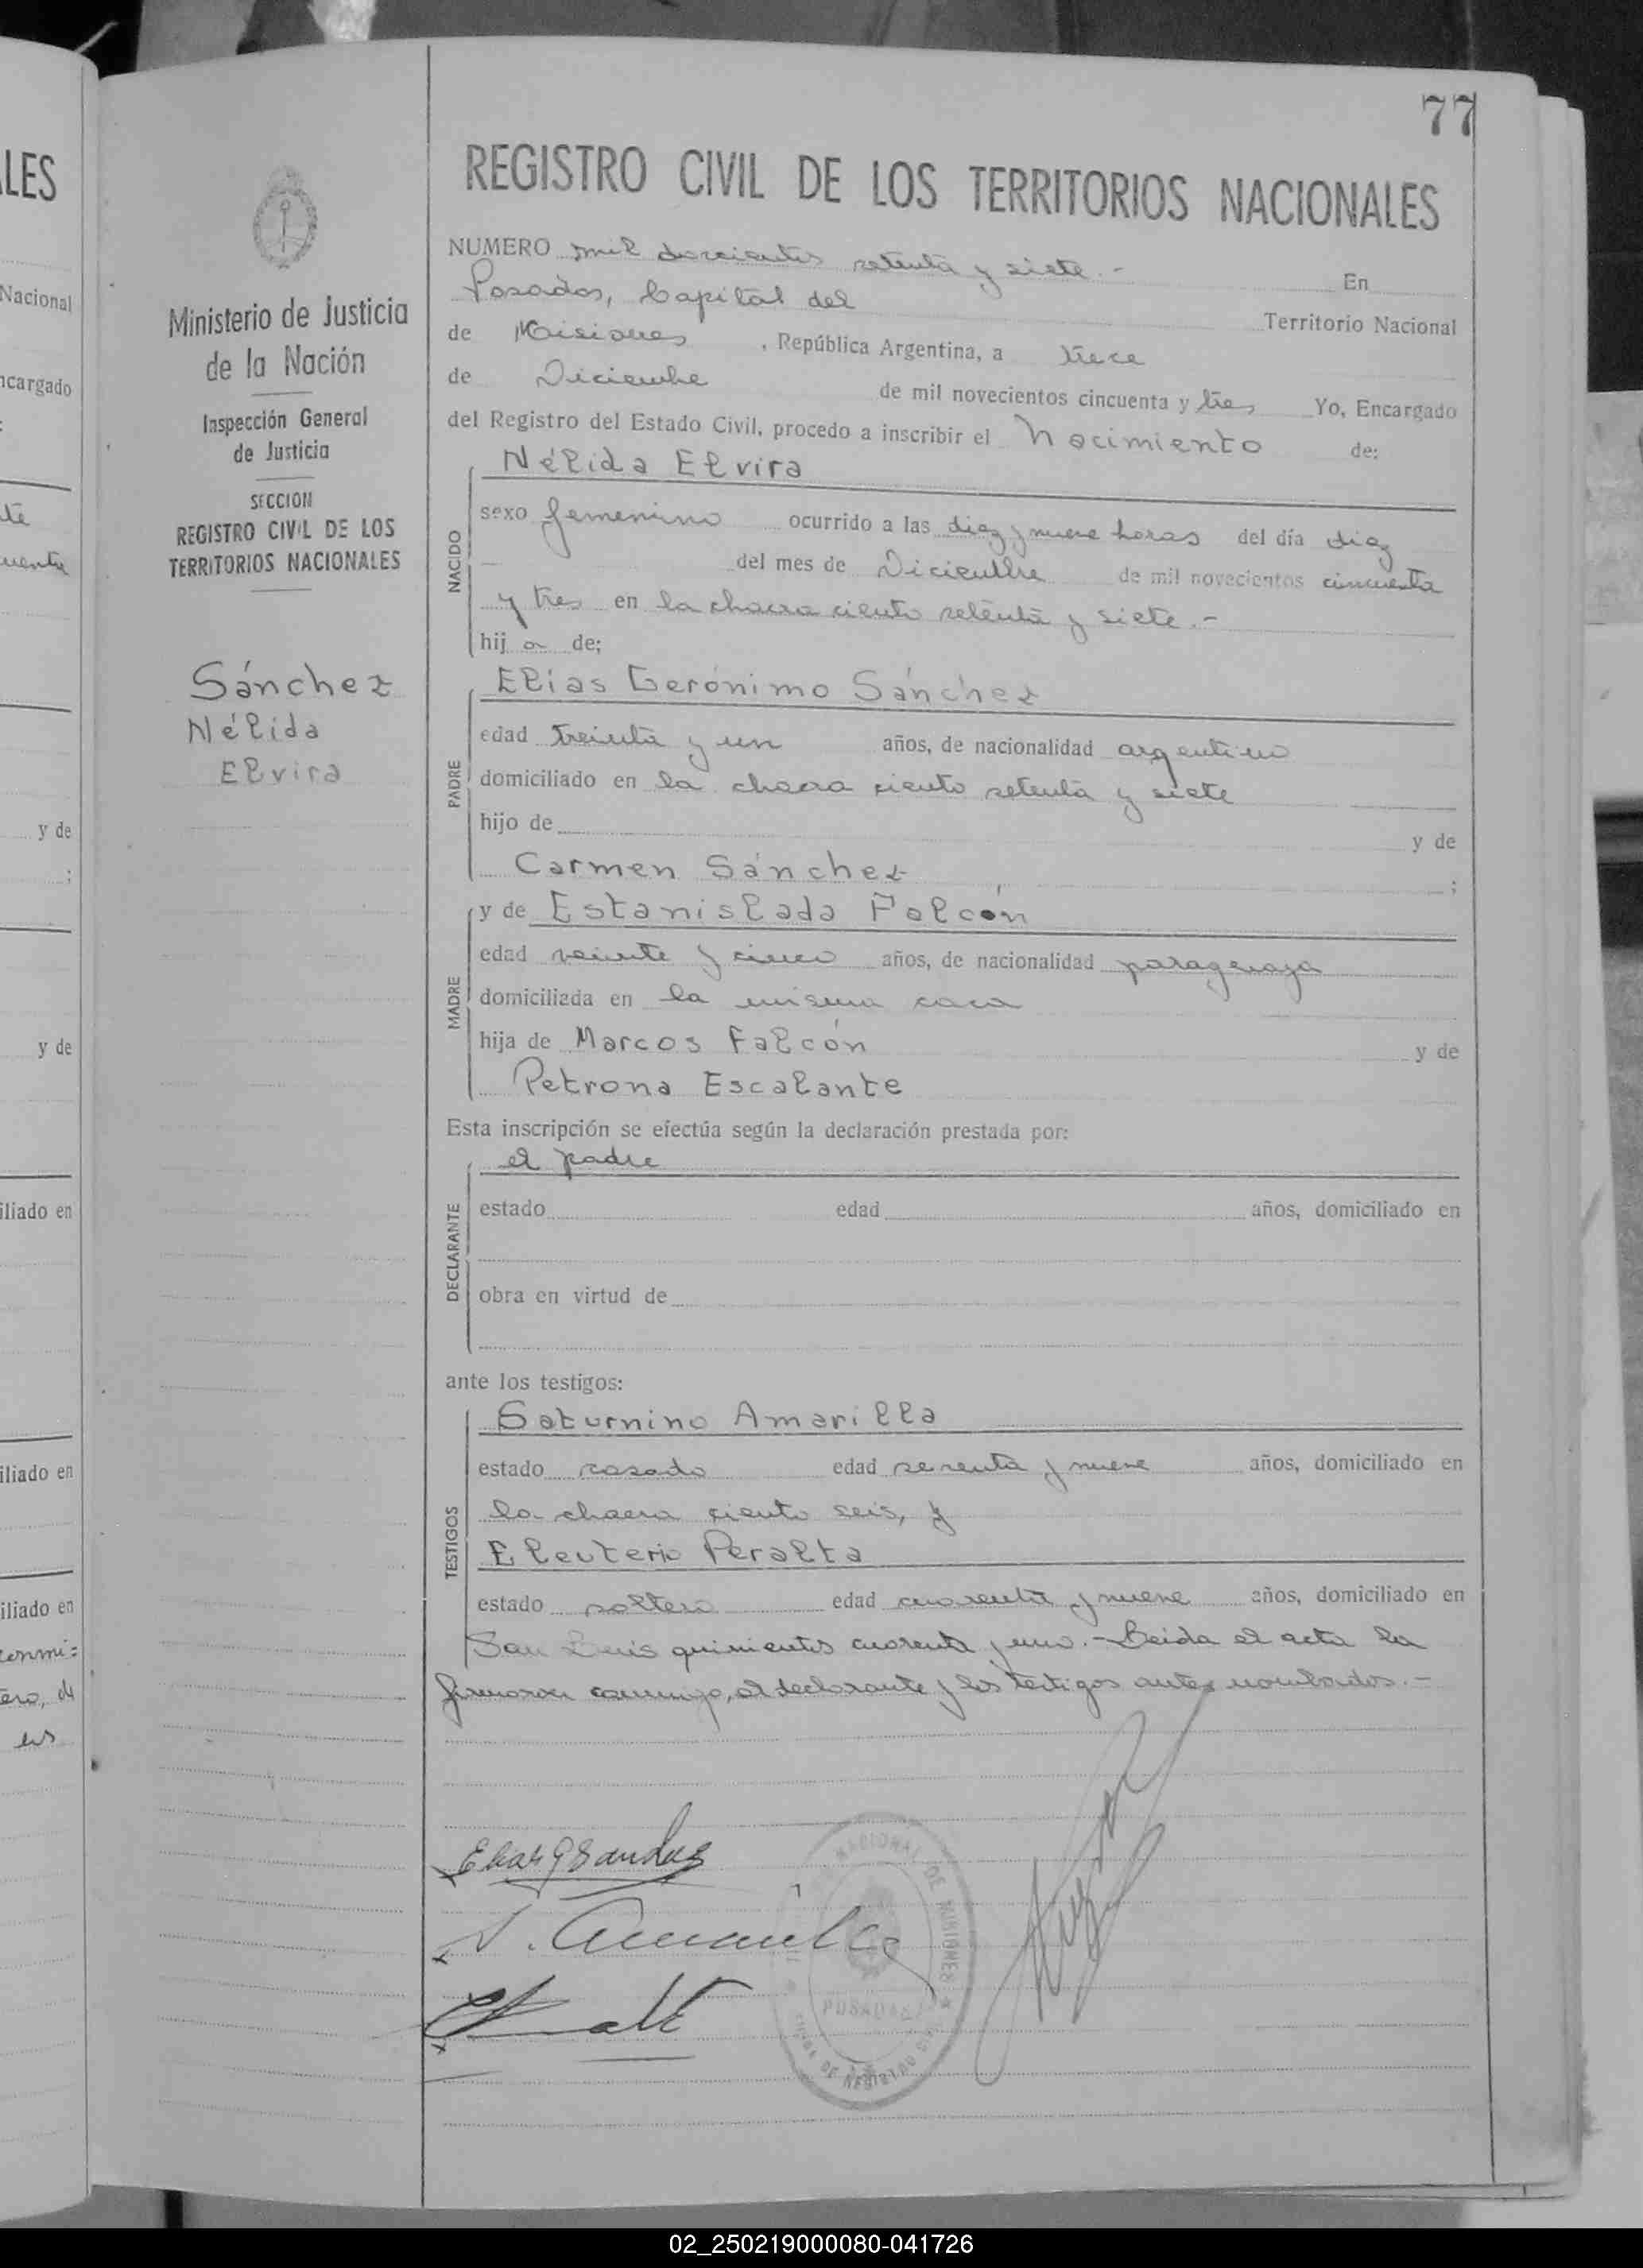 77
REGISTRO CIVIL DE LOS TERRITORIOS NACIONALES
Ministerio de Justicia
de la Nación
Inspección General
de Justicia
SECCION
REGISTRO CIVIL DE LOS
TERRITORIOS NACIONALES
Sánchez
Nélida
Elvira
NUMERO mil doscientos setenta y siete.- En
Posadas, Capital del Territorio Nacional
de Misiones, República Argentina, a trece
de Diciembre de mil novecientos cincuenta y tres Yo, Encargado
del Registro del Estado Civil, procedo a inscribir el Nacimiento de:
NACIDO
Nélida Elvira
sexo femenino ocurrido a las diez y nueve horas del día diez
del mes de Diciembre de mil novecientos cincuenta
y tres en la chacra ciento setenta y siete.-
hij a de;
PADRE
Elias Gerónimo Sánchez
edad treinta y un años, de nacionalidad argentino
domiciliado en la chacra ciento setenta y siete
hijo de y de
Carmen Sánchez ;
MADRE
y de Estanislada Falcón
edad veinte y cinco años, de nacionalidad paraguaya
domiciliada en la misma casa
hija de Marcos Falcón y de
Petrona Escalante
Esta inscripción se efectúa según la declaración prestada por:
DECLARANTE
el padre
estado edad años, domiciliado en
obra en virtud de
ante los testigos:
TESTIGOS
Saturnino Amarilla
estado casado edad setenta y nueve años, domiciliado en
la chacra ciento seis, y
Eleuterio Peralta
estado soltero edad cuarenta y nueve años, domiciliado en
San Luis quinientos cuarenta y uno.- Leida el acta la
firmaron conmigo, el declarante y los testigos antes nombrados.-
Elias G Sanchez
S. Amarilla
NACIONAL DE MISIONES
POSADAS
DE REGISTRO CIVIL
LES
Nacional
ncargado
y de
y de
iliado en
iliado en
iliado en
02_250219000080-041726